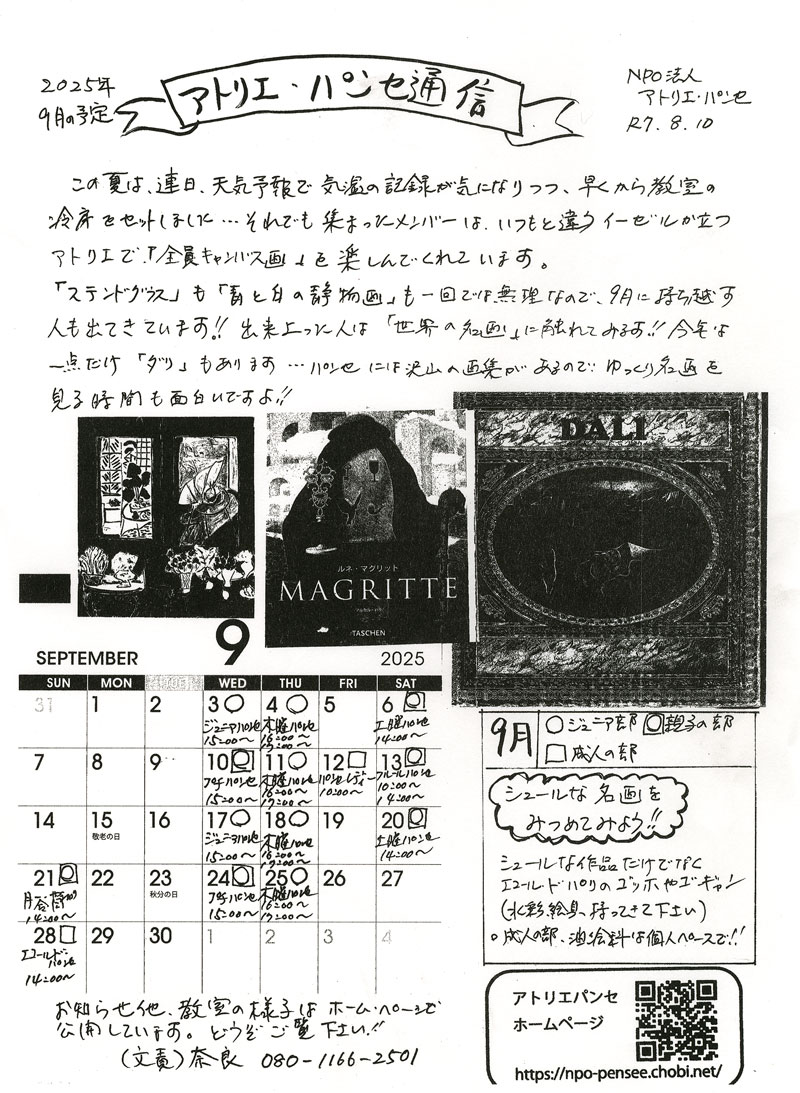 2025年
9月の予定
アトリエ・パンセ通信
NPO法人
アトリエ・パンセ
R7.8.10
この夏は、連日、天気予報で気温の記録が気になりつつ、早くから教室の
冷房をセットしました…それでも集まったメンバーは、いつもと違うイーゼルが立つ
アトリエで「全員キャンバス画」を楽しんでくれています。
「ステンドグラス」も「青と白の静物画」も一回では無理なので、9月に持ち越す
人も出てきています!! 出来上った人は「世界の名画」に触れてみます!! 今年は
一点だけ「ダリ」もあります…パンセには沢山の画集があるので ゆっくり名画を
見る時間も面白いですよ!!
ルネ・マグリット
MAGRITTE
TASCHEN
DALI
SEPTEMBER 9 2025
SUN MON TUE WED THU FRI SAT
31 1 2 3○ 4○ 5 6
ジュニアパンセ 木曜パンセ 土曜パンセ
15:00〜 16:00〜 14:00〜
17:00〜
7 8 9 10 11○ 12□ 13
プチパンセ 木曜パンセ パンセレディー フルールパンセ
15:00〜 16:00〜 10:00〜 10:00〜
17:00〜 14:00〜
14 15 16 17○ 18○ 19 20
敬老の日 ジュニアパンセ 木曜パンセ 土曜パンセ
15:00〜 16:00〜 14:00〜
17:00〜
21 22 23 24 25○ 26 27
秋分の日 プチパンセ 木曜パンセ
14:00〜 15:00〜 16:00〜
17:00〜
28□ 29 30 1 2 3 4
エコールド・
パンセ
14:00〜
9月 ○ジュニア部 親子の部
□成人の部
シュールな名画を
みつめてみよう!!
シュールな作品だけでなく
エコール・ド・パリのゴッホやゴーギャン
(水彩絵具、持ってきて下さい)
○成人の部、油絵科は個人ペースで!!
お知らせ他、教室の様子はホーム・ページで
公開しています。どうぞご覧下さい!!
(文責)奈良 080-1166-2501
アトリエパンセ
ホームページ
https://npo-pensee.chobi.net/